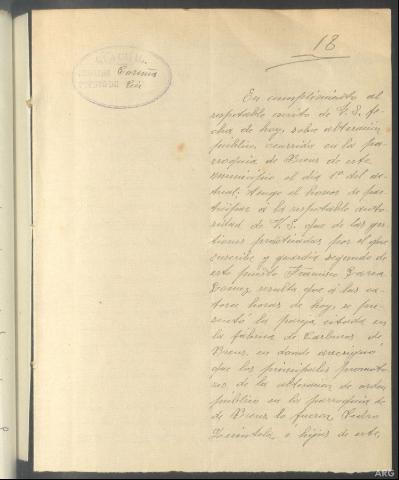 18
Coruña
Cée
En cumplimiento al
respetable escrito de V. S. fe-
cha de hoy, sobre alteración
pública, ocurrida en la pa-
rroquia de Brens de este
municipio el día 1º del ac-
tual: tengo el honor de par-
ticipar á la respetable auto-
ridad de V. S. que de las ges-
tiones practicadas por el que
suscribe y guardia segundo de
este puesto Francisco
resulta que á las ca-
torce horas de hoy, se pre-
sentó la pareja citada en
la fábrica de Carburos de
Brens, en donde averiguó
que los principales promoto-
res de la alteración de orden
público en la parroquia de
de Brens lo fueron, Pedro
é hijos de este,
ARG